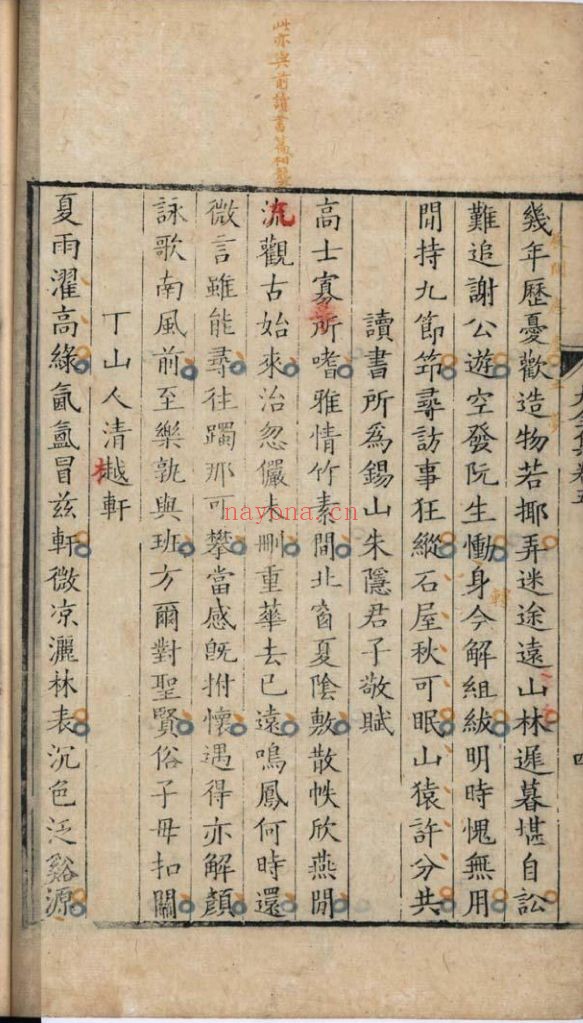 幾年歷憂歡造物若揶弄迷途遠山林遲暮堪自訟
難追謝公遊空發阮生慟身今解組紱明時愧無用
閒持九節筇尋訪事狂縱石屋秋可眠山猿許分共
讀書所爲錫山朱隱君子敬賦
高士寡所嗜雅情竹素閒北窗夏陰敷散帙欣燕閒
流觀古始來治忽儼未刪重華去已遠鳴鳳何時還
微言雖能尋往躅那可攀當感旣拊懷遇得亦解顏
詠歌南風前至樂孰與班方爾對聖賢俗子毋扣關
丁山人清樾軒
夏雨濯高綠氤氳冒茲軒微凉灑林表沉色泛谿源
此亦與前讀書篇相
nayona.cn